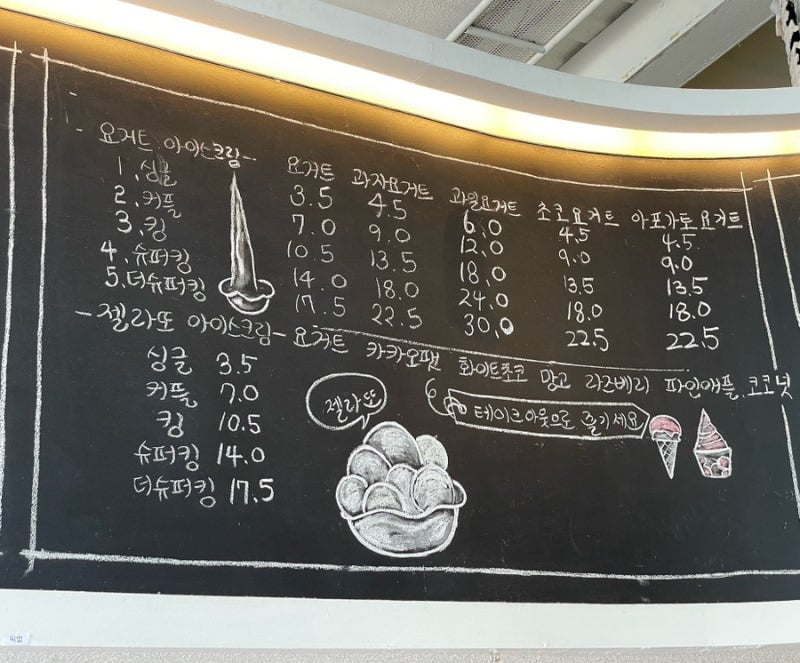 -요거트 아이스크림-
요거트 과자요거트 과일요거트 초코요거트 아포가토요거트
1. 싱글 3.5 4.5 6.0 4.5 4.5
2. 커플 7.0 9.0 12.0 9.0 9.0
3. 킹 10.5 13.5 18.0 13.5 13.5
4. 슈퍼킹 14.0 18.0 24.0 18.0 18.0
5. 더슈퍼킹 17.5 22.5 30.0 22.5 22.5
-젤라또 아이스크림- 요거트 카카오팸 화이트초코 망고 라즈베리 파인애플, 코코넛
싱글 3.5
커플 7.0
킹 10.5
슈퍼킹 14.0
더슈퍼킹 17.5
젤라또
테이크아웃으로 즐기세요
픽업